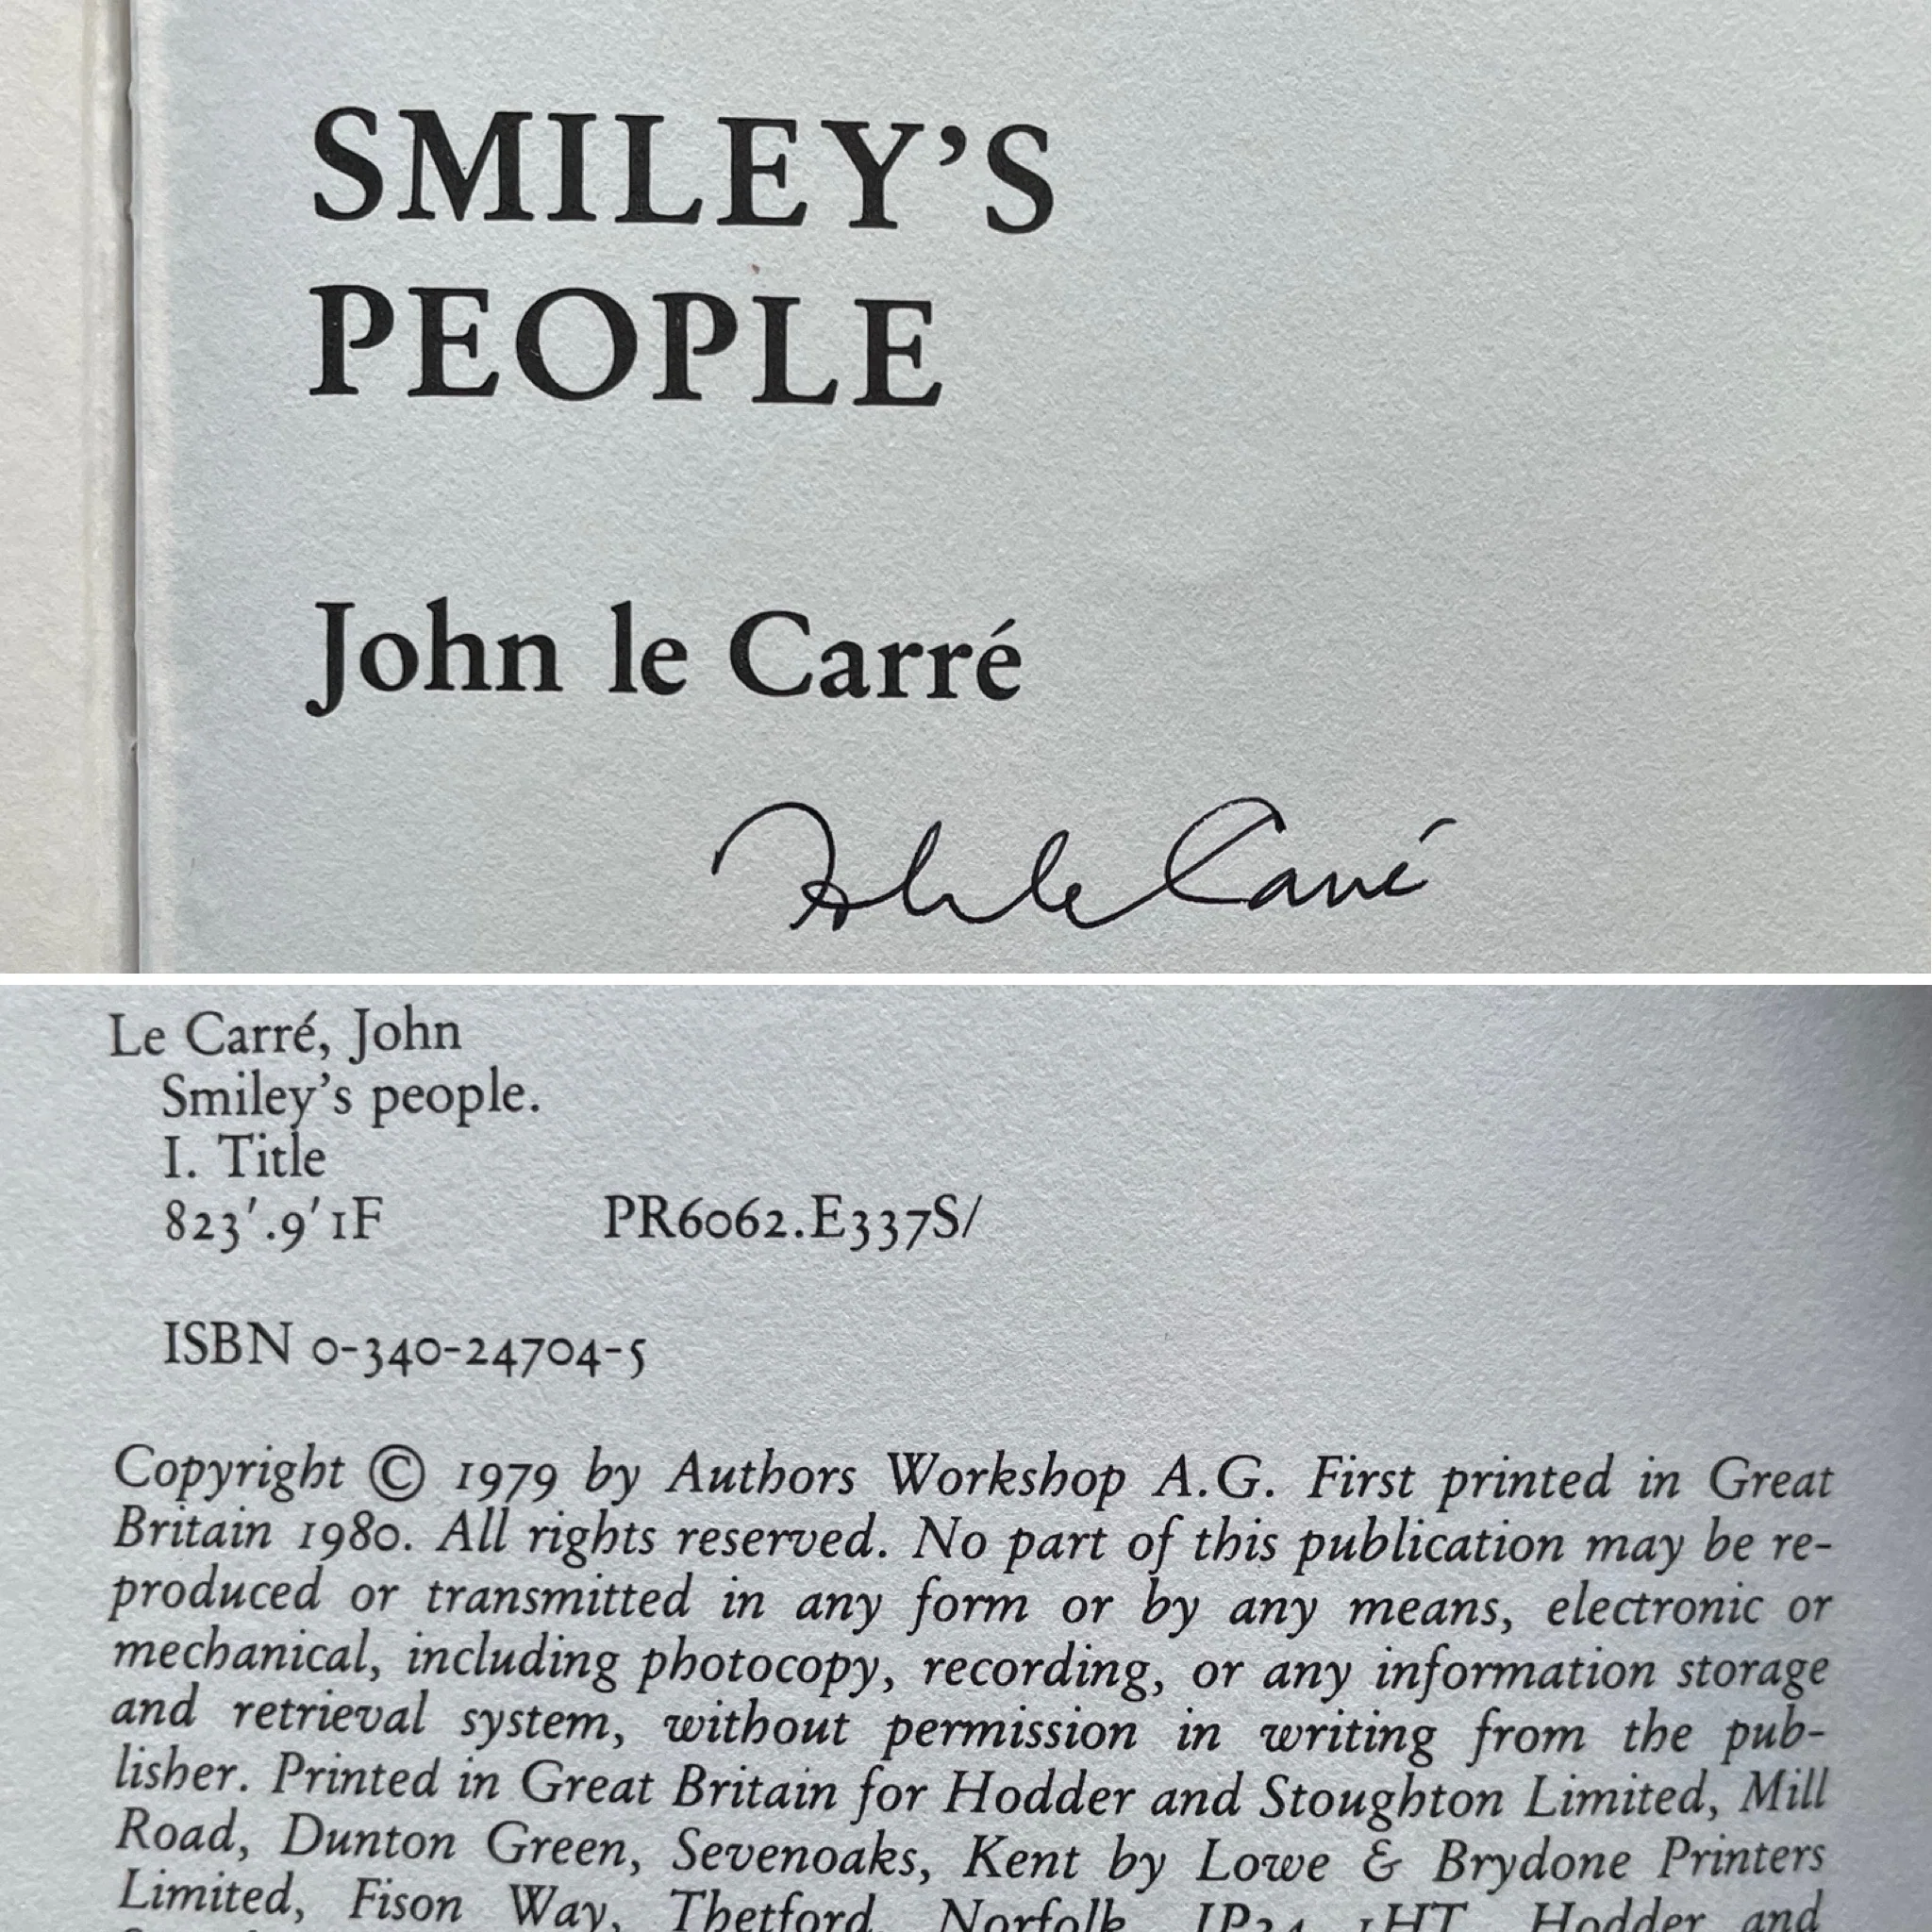 SMILEY'S
PEOPLE
John le Carré
John le Carré
Le Carré, John
Smiley's people.
I. Title
823'.9'1F PR6062.E337S/
ISBN 0-340-24704-5
Copyright © 1979 by Authors Workshop A.G. First printed in Great
Britain 1980. All rights reserved. No part of this publication may be re-
produced or transmitted in any form or by any means, electronic or
mechanical, including photocopy, recording, or any information storage
and retrieval system, without permission in writing from the pub-
lisher. Printed in Great Britain for Hodder and Stoughton Limited, Mill
Road, Dunton Green, Sevenoaks, Kent by Lowe & Brydone Printers
Limited, Fison Way, Thetford, Norfolk, IP24 1HT. Hodder and